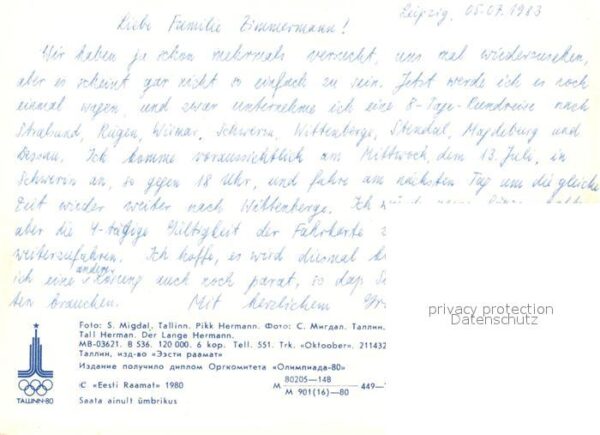 Leipzig, 05.07.1983
Liebe Familie Zimmermann!
Wir haben ja schon mehrmals versucht, uns mal wiederzusehen,
aber es scheint gar nicht so einfach zu sein. Jetzt werde ich es noch
einmal wagen, und zwar unternehme ich eine 8-Tage-Rundreise nach
Stralsund, Rügen, Wismar, Schwerin, Wittenberge, Stendal, Magdeburg und
Dessau. Ich komme voraussichtlich am Mittwoch, dem 13. Juli, in
Schwerin an, so gegen 18 Uhr, und fahre am nächsten Tag um die gleiche
Zeit wieder weiter nach Wittenberge. Ich
aber die 4-tägige Gültigkeit der Fahrkarte
weiterzufahren. Ich hoffe, es wird diesmal
ich eine andere Lösung auch noch parat, so daß
ten brauchen. Mit herzlichem
privacy protection
Datenschutz
Foto: S. Migdal. Tallinn. Pikk Hermann. Фото: С. Мигдал. Таллин.
Tall Herman. Der Lange Hermann.
MB-03621. 8 536. 120 000. 6 kop. Tell. 551. Trk. «Oktoober». 211432
Таллин, изд-во «Ээсти раамат»
Издание получило диплом Оргкомитета «Олимпиада-80»
© «Eesti Raamat» 1980
M 80205—148 / M 901(16)—80 449—
Saata ainult ümbrikus
TALLINN·80